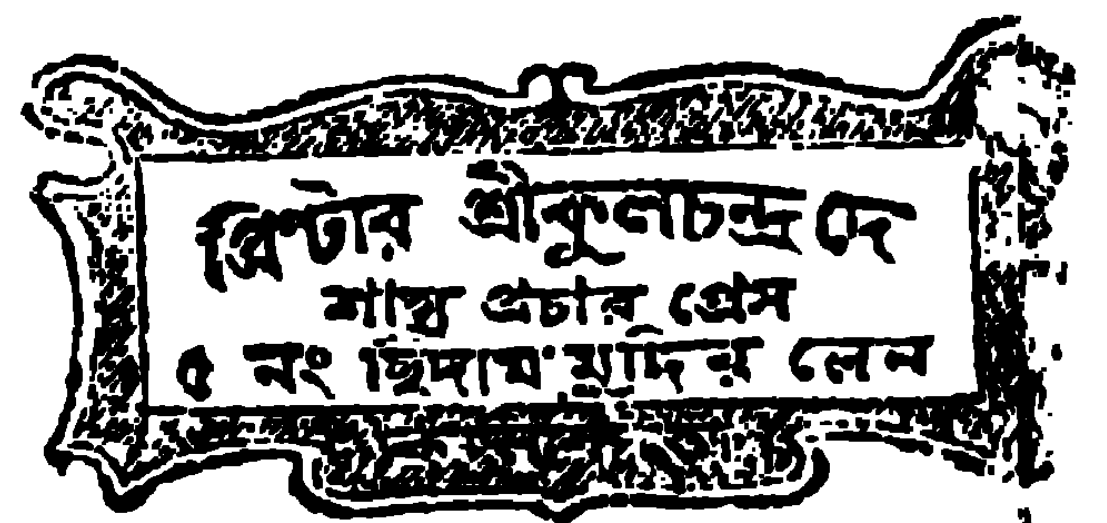 প্রিণ্টার শ্রীকুলচন্দ্র দে
শাস্ত্র প্রচার প্রেস
৫ নং ছিদাম মুদির লেন